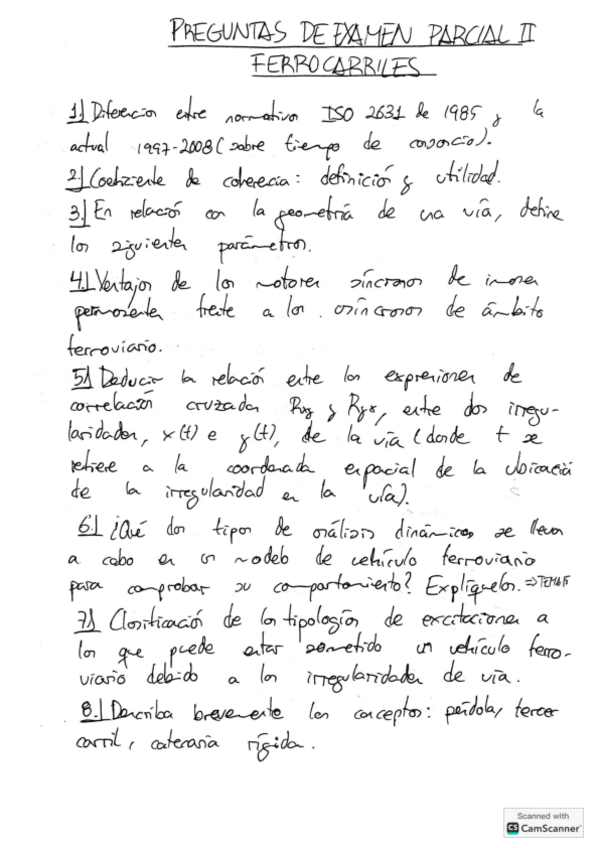 PREGUNTAS DE EXAMEN PARCIAL II
FERROCARRILES
1.) Diferencias entre normativa ISO 2631 de 1985 y la
actual 1997-2008 (sobre tiempo de cansancio).
2.) Coeficiente de coherencia: definición y utilidad.
3.) En relación con la geometría de una vía, define
los siguientes parámetros.
4.) Ventajas de los motores síncronos de imanes
permanentes frente a los asíncronos de ámbito
ferroviario.
5.) Deducir la relación entre las expresiones de
correlación cruzada Rxy y Ryx, entre dos irregu-
laridades, x(t) e y(t), de la vía (donde t se
refiere a la coordenada espacial de la ubicación
de la irregularidad en la vía).
6.) ¿Qué dos tipos de análisis dinámicos se llevan
a cabo en un modelo de vehículo ferroviario
para comprobar su comportamiento? Explíquelos. ⇒ TEMA 15
7.) Clasificación de las tipologías de excitaciones a
los que puede estar sometido un vehículo ferro-
viario debido a las irregularidades de vía.
8.) Describa brevemente los conceptos: péndola, tercer
carril, catenaria rígida.
Scanned with
CS CamScanner